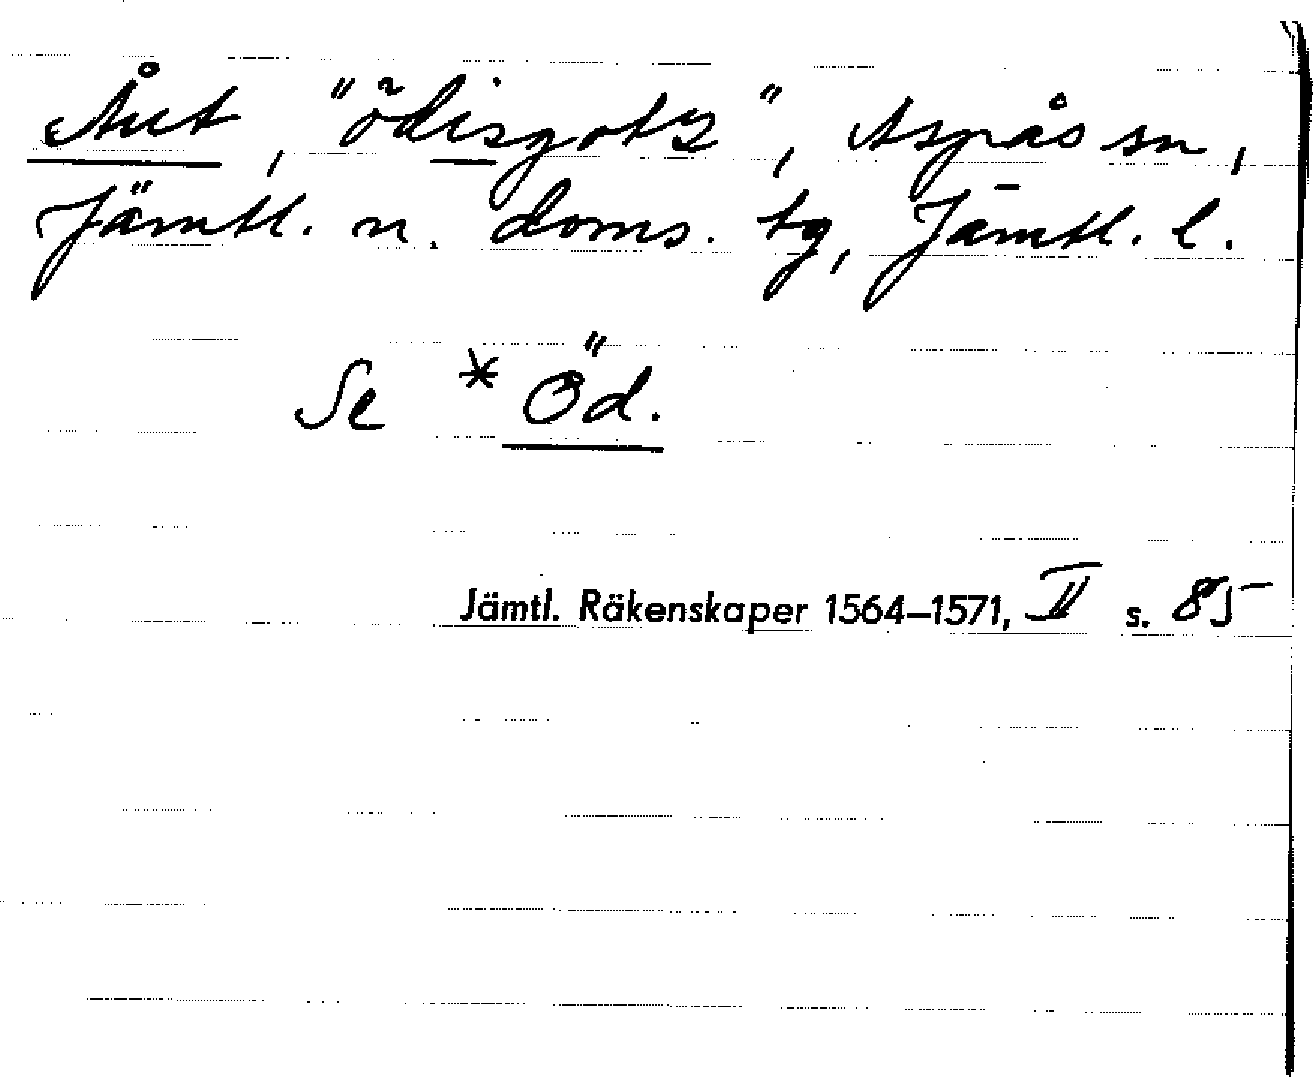 Åut, "ödisgotz", Aspås sn,
Jämtl. n. doms. tg, Jämtl. l.
Se * Öd.
Jämtl. Räkenskaper 1564–1571, II s. 85